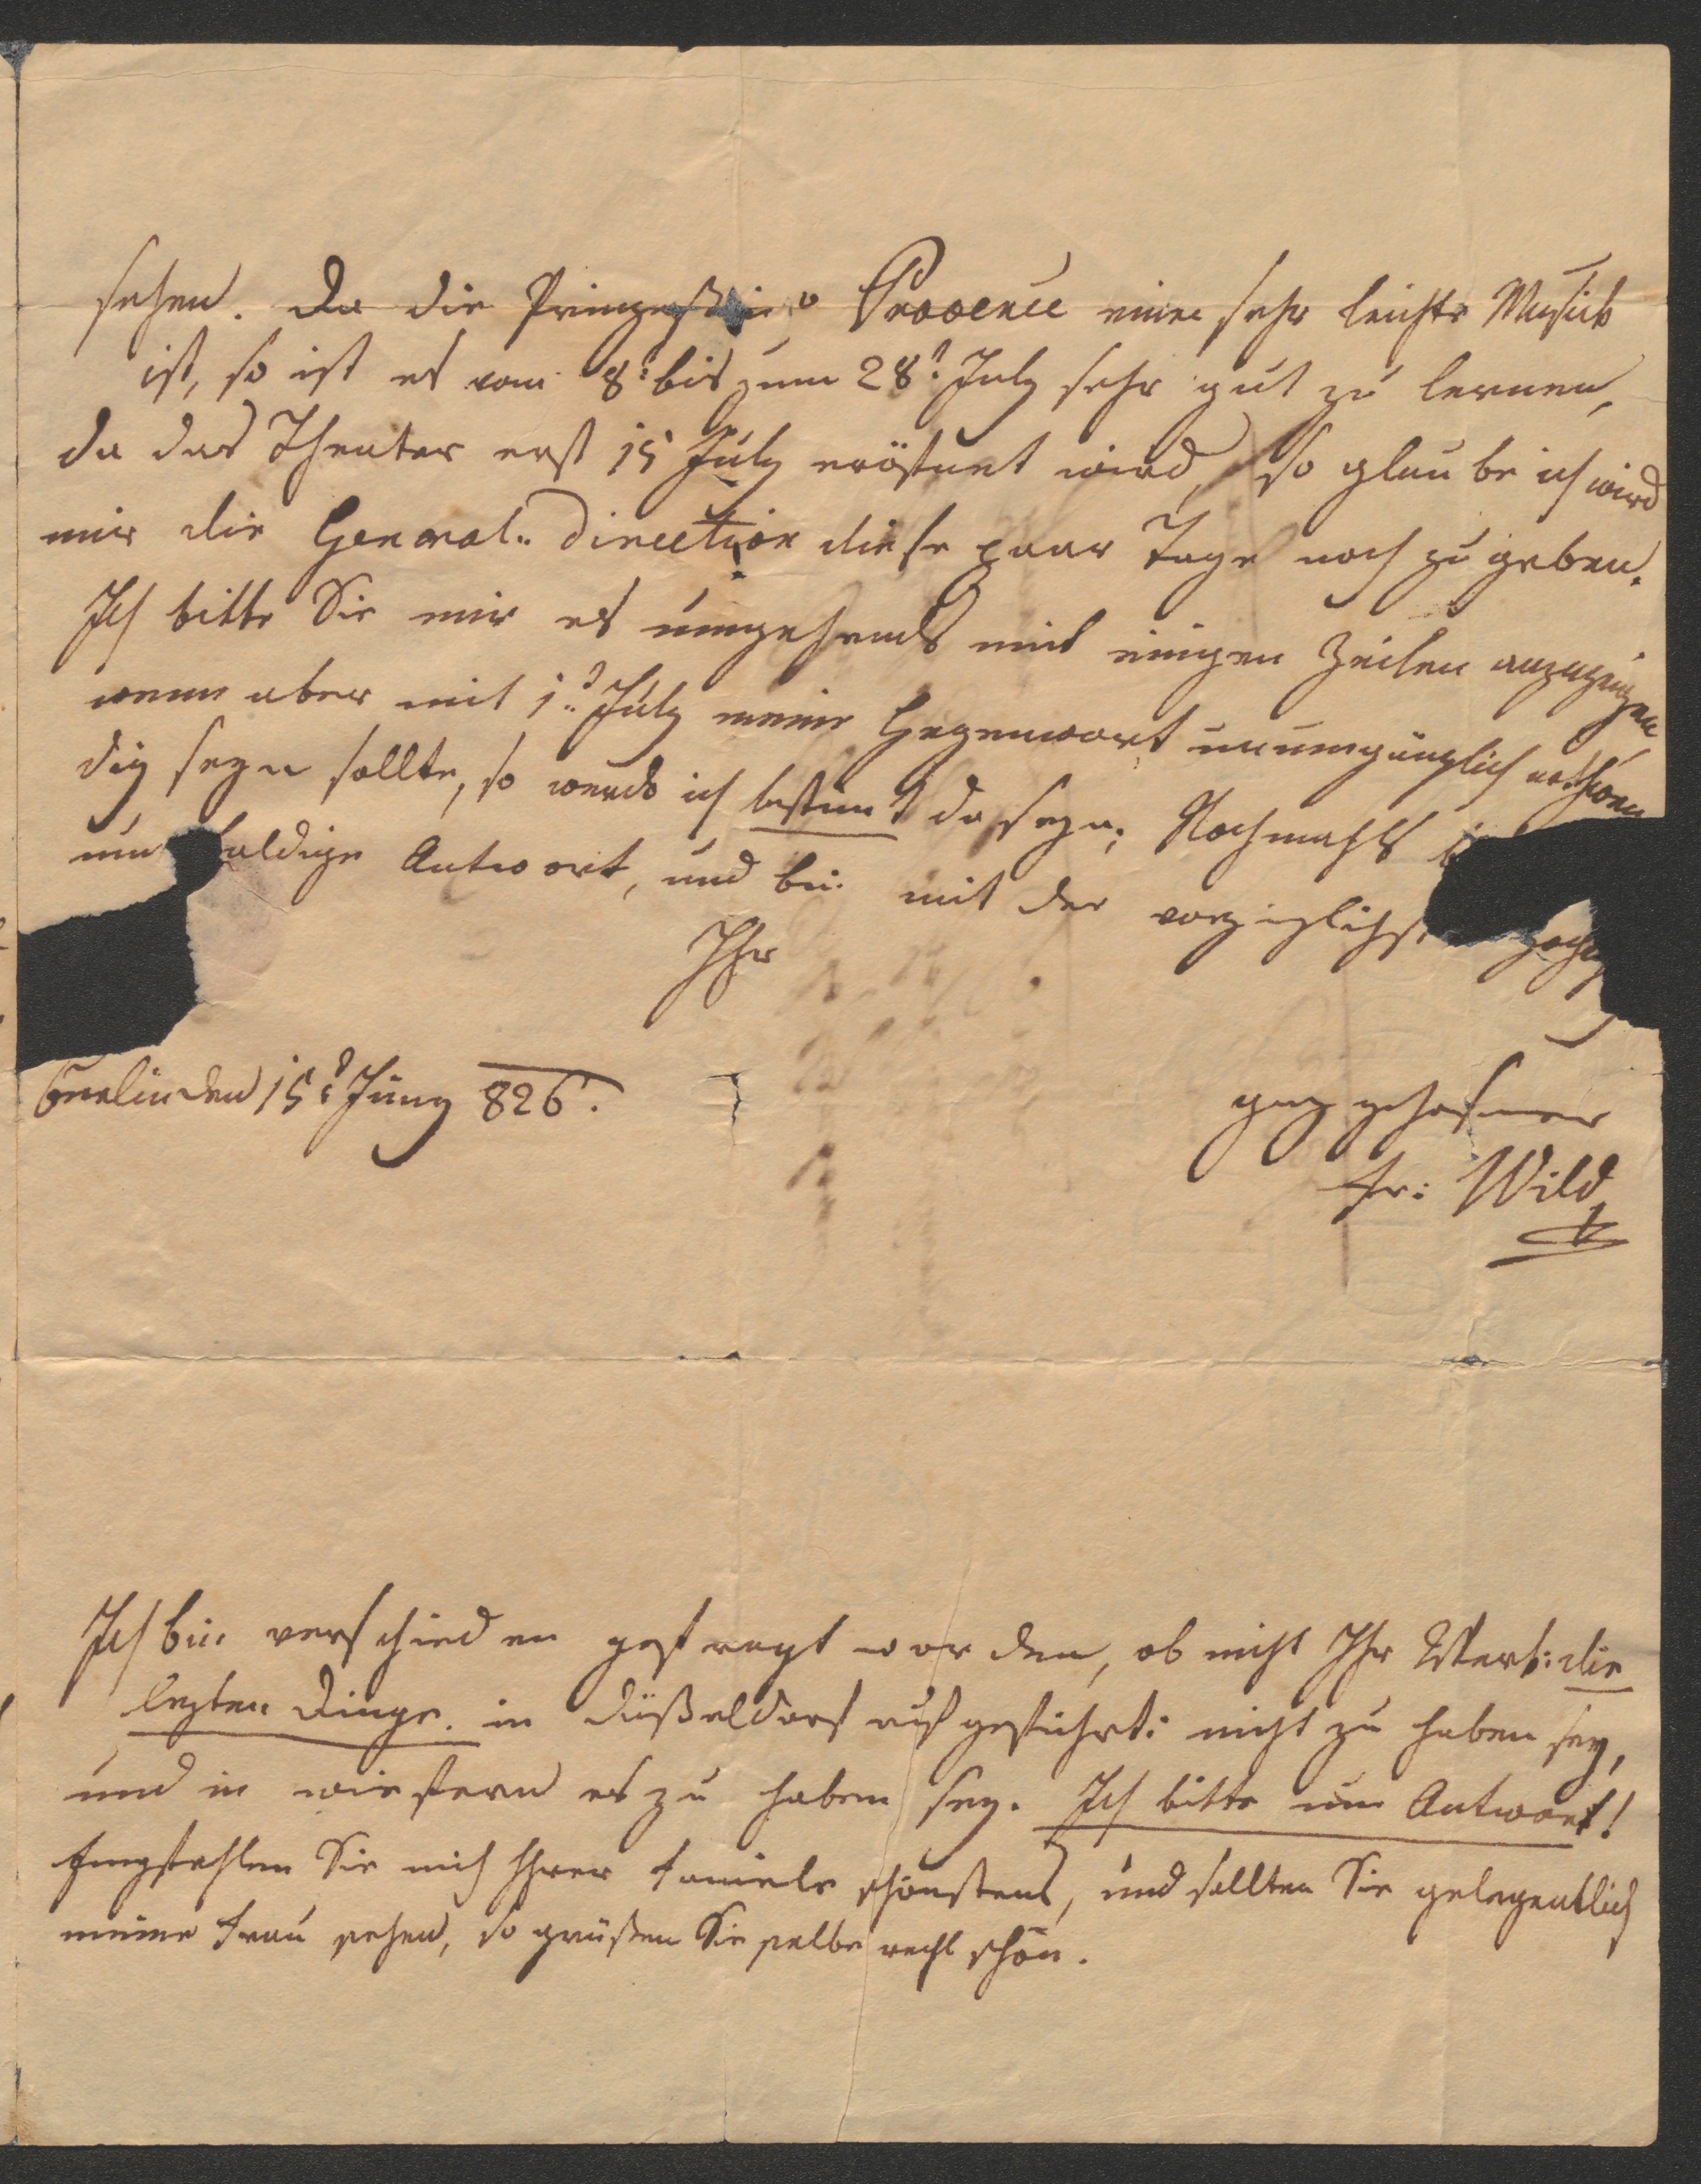 sehen. Da die Prinzeßin v Provence eine sehr leichte Musick
ist, so ist es vom 8: bis zum 28: July sehr gut zu lernen,
da das Theater erst 15 July eröffnet wird, so glaube ich wird
mir die General: Direction diese paar Tage noch zu geben.
Ich bitte Sie mir es umgehends mit einigen Zeilen anzuzeigen
wenn aber mit 1: July meine Gegenwart unumgänglich nothwen
dig seyn sollte, so werde ich bestimt da seyn; Nochmahls
um baldige Antwort, und bin mit der vorziglichst
Ihr
Berlin den 15: Juny 826.
ganz gehorsamer
Fr: Wild
Ich bin verschieden gefragt worden, ob nicht Ihr Werk: die
lezten Dinge. in Düßeldorf aufgeführt: nicht zu haben sey,
und in wiefern es zu haben sey. Ich bitte um Antwort!
Empfehlen Sie mich Ihrer Familie schönstens, und sollten Sie gelegentlich
meine Frau sehen, so grüßen Sie selbe recht schön.